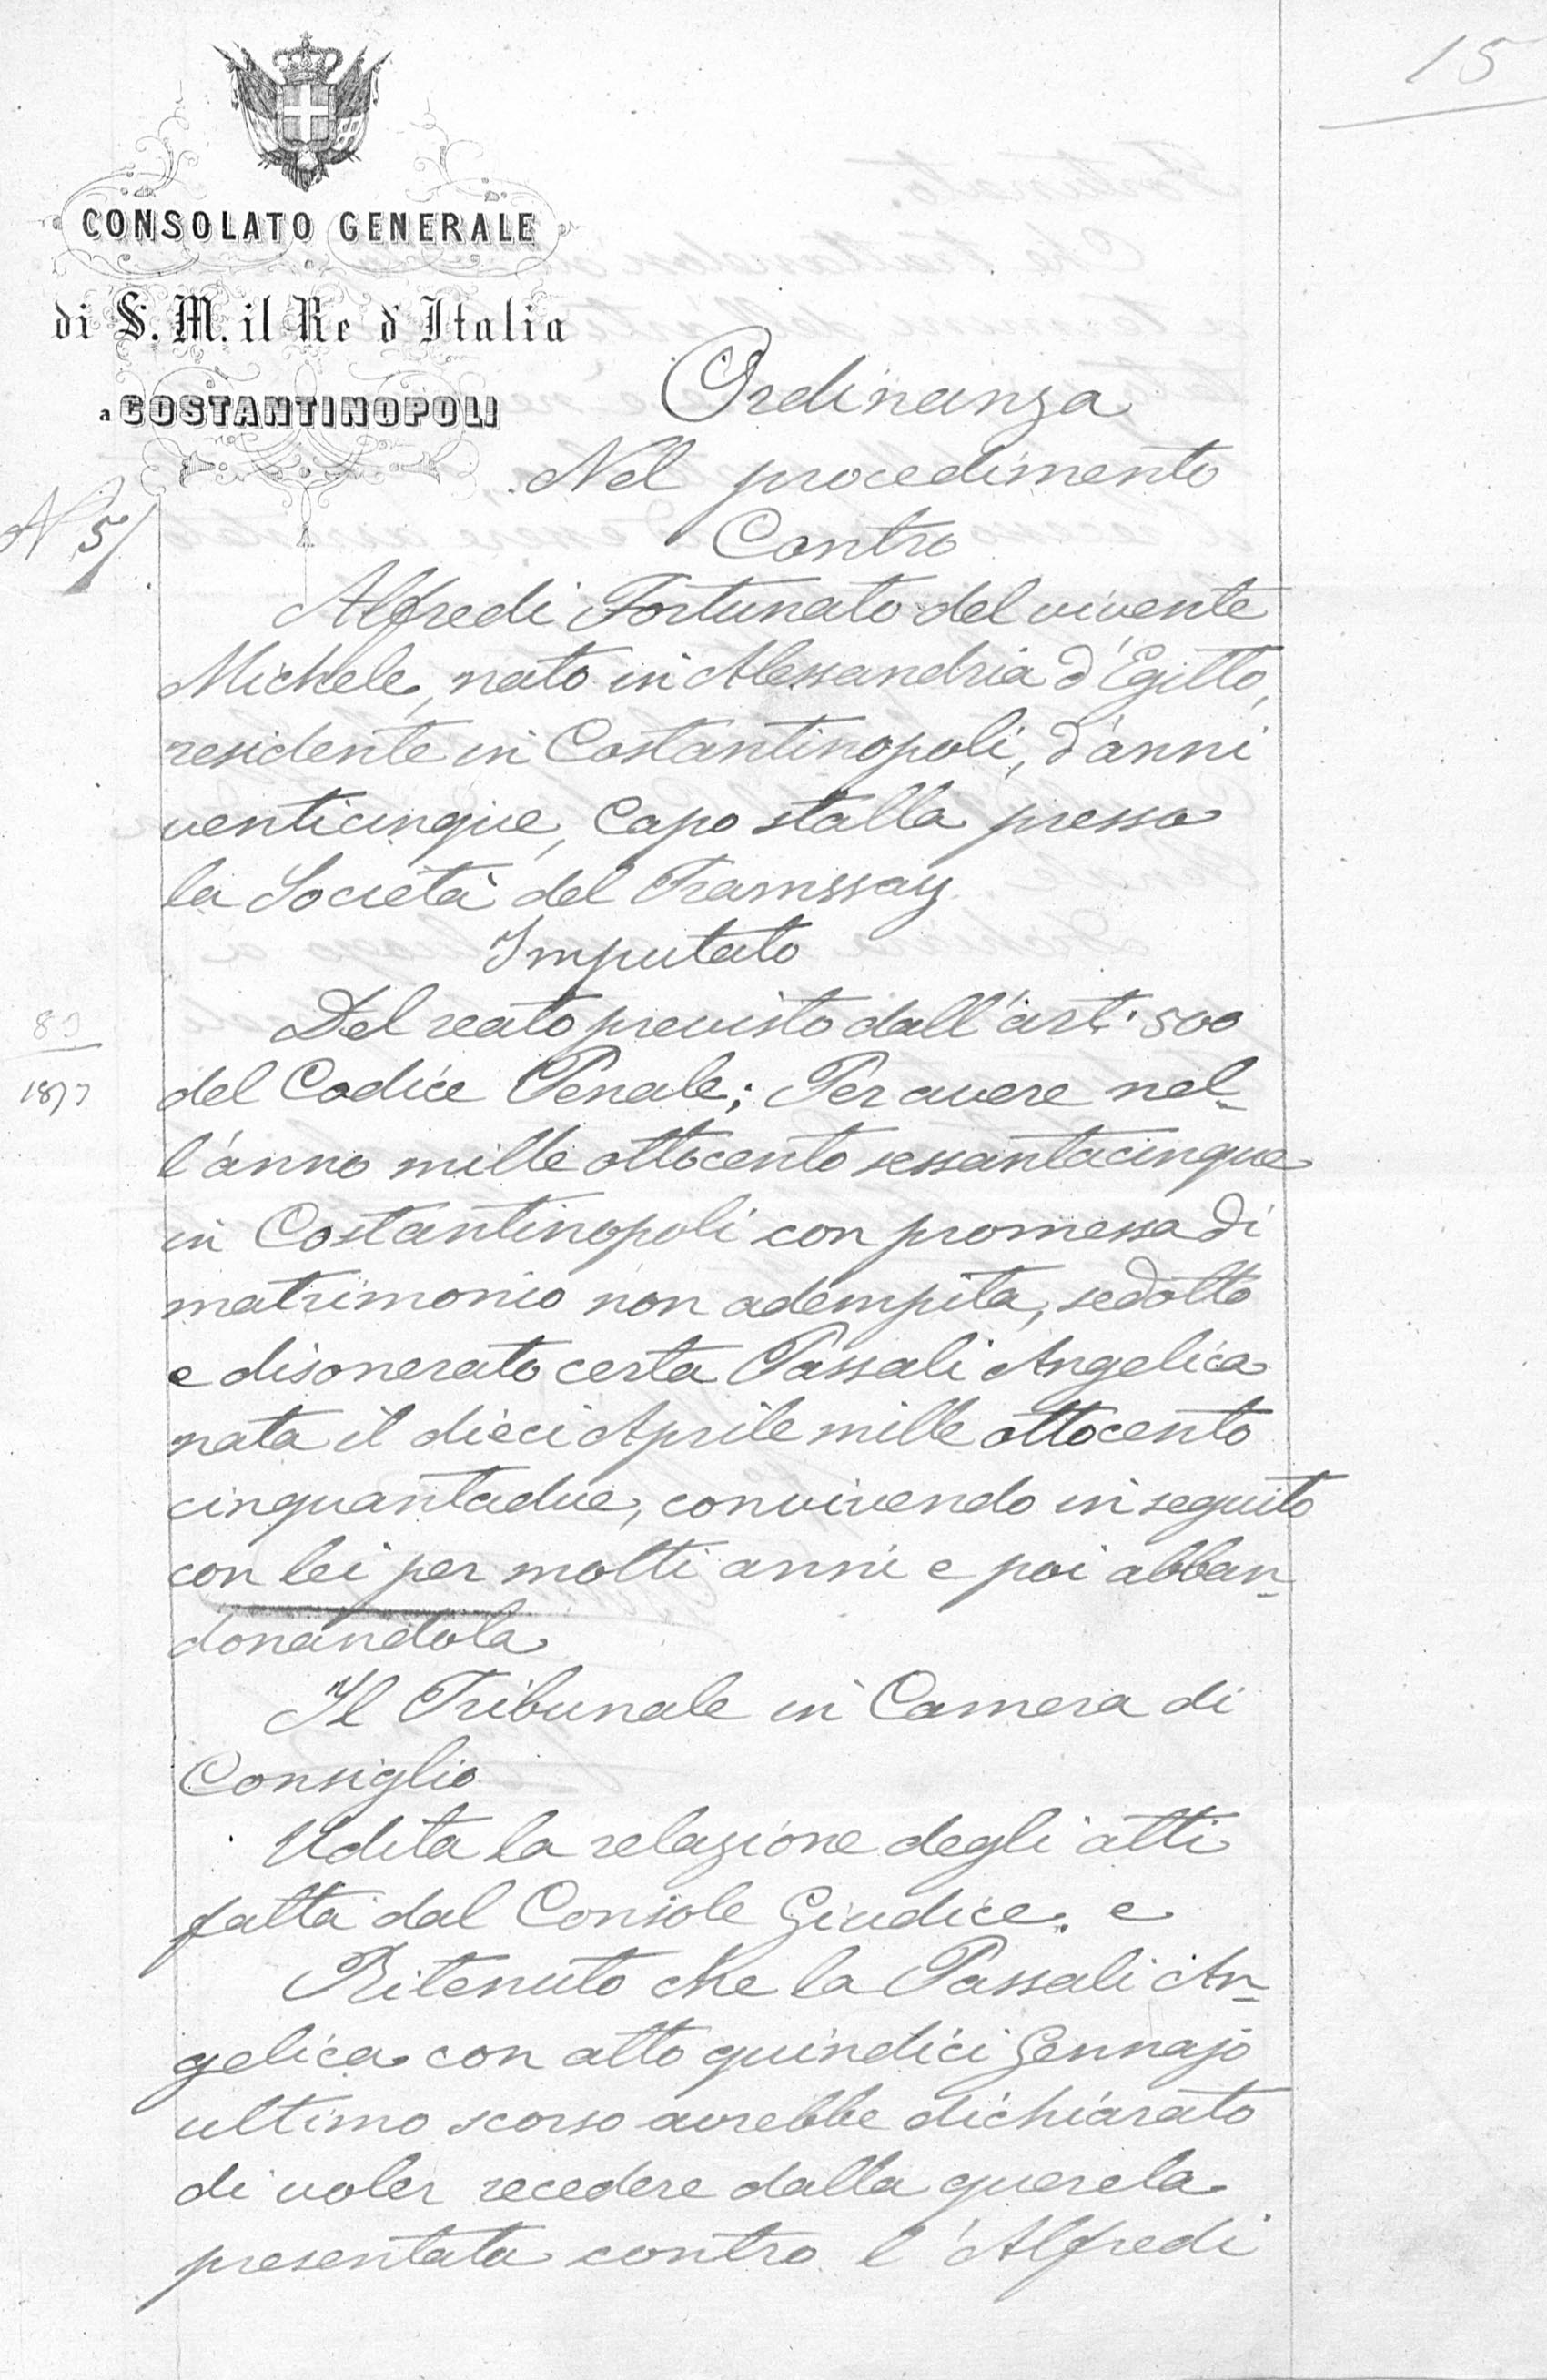 15
CONSOLATO GENERALE
di S. M. il Re d'Italia
a COSTANTINOPOLI
Ordinanza
Nel procedimento
N 5
Contro
Alfredi Fortunato del vivente
Michele, nato in Alessandria d'Egitto,
residente in Costantinopoli, d'anni
venticinque, Capo stalla presso
la Società del Tramssay
Imputato
Del reato previsto dall'art. 500
del Codice Penale; Per avere nel-
l'anno mille ottocento sessantacinque
in Costantinopoli con promessa di
matrimonio non adempita, sedotto
e disonerato certa Passali Angelica
nata il dieci Aprile mille ottocento
cinquantadue, convivendo in seguito
con lei per molti anni e poi abban-
donandola
Il Tribunale in Camera di
Consiglio
Udita la relazione degli atti
fatta dal Console Giudice. e
Ritenuto che la Passali An-
gelica con atto quindici Gennajo
ultimo scorso avrebbe dichiarato
di voler recedere dalla querela
presentata contro l'Alfredi